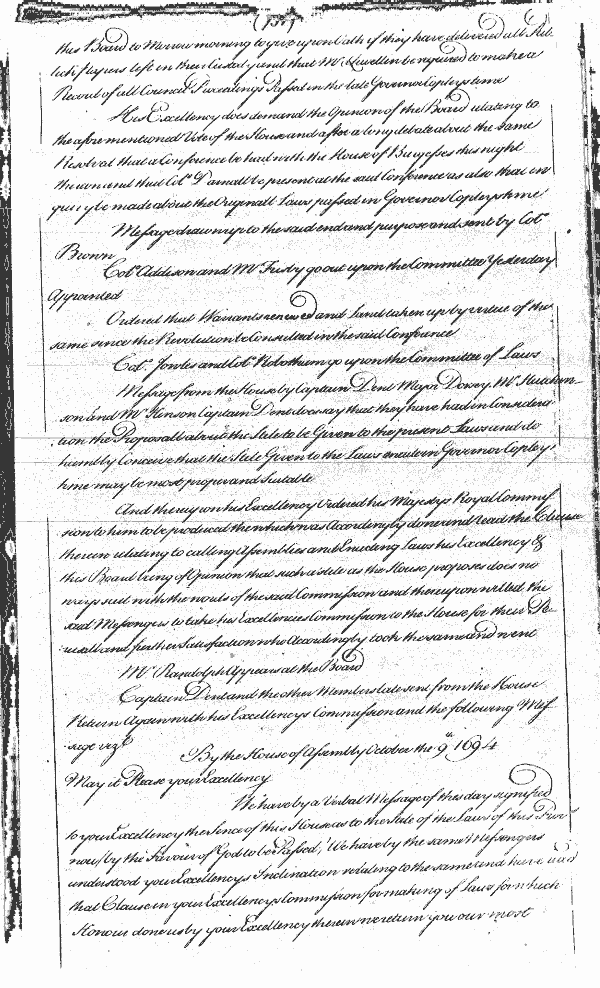 (157)
this Board to Morrow morning to give upon Oath if they have delivered all Pub
lick papers left in their Custody and that Mr Lewellen be required to make a
Record of all Councill Proceedings Passed in the late Governor Copleys time
His Excellency does demand the Opinion of the Board relating to
the aforementioned Vote of the House and after a long debate about the same
Resolved that a Conference be had with the House of Burgesses this night
thereon and that Colo Darnall be present at the said Conference as also that en
quiry be made about the Originall Laws passed in Governor Copleys time
Message drawn up to the said end and purpose and sent by Colo
Brown
Colo Addison and Mr Frisby go out upon the Committee Yesterday
Appointed
Ordered that Warrants renewed and Land taken up by virtue of the
same since the Revolution be Consulted in the said Conference
Colo Jowles and Colo Robotham go upon the Committee of Laws
Message from the House by Captain Dent Major Dorsey Mr Hutchin-
son and Mr Henson Captain Dent does say that they have had in Considera
tion the Proposall about the Stile to be Given to the present Laws and do
humbly Conceive that the Stile Given to the Laws enacted in Governor Copleys
time may be most proper and suitable
And thereupon his Excellency Ordered his Majestys Royal Commis
sion to him to be produced then which was Accordingly done and read the Clause
therein relating to calling Assemblies and Enacting Laws his Excellency &
this Board being of Opinion that such a stile as the House proposes does no
ways suit with the words of the said Commission and thereupon willed the
said Messengers to take his Excellencys Commission to the House for their Pe-
rusall and further Satisfaction who Accordingly took the same and went
Mr Randolph Appears at the Board
Captain Dent and the other Members late sent from the House
Return Again with his Excellencys Commission and the following Mes
sage vizt
By the House of Assembly October the 9th 1694
May it Please your Excellency
We have by a Verbal Message of this day signifyed
to your Excellency the Sence of this House as to the Stile of the Laws of this Prov
now by the Favour of God to be Passed, We have by the same Messengers
understood your Excellencys Inclination relating to the same and have read
that Clause in your Excellencys Commission for making of Laws for which
Honour done us by your Excellency therein we return you our most